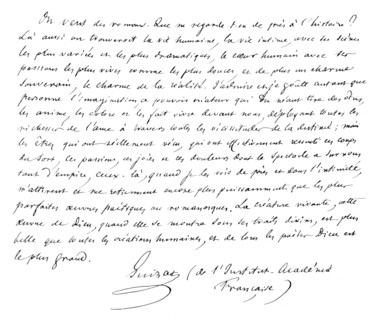 On veut des romans. Que ne regarde-t-on de près à l'histoire?
Là aussi on trouverait la vie humaine, la vie intime, avec ses scènes
les plus variées et les plus dramatiques, le cœur humain avec ses
passions les plus vives comme les plus douces et de plus un charme
souverain, le charme de la réalité. J'admire et je goûte autant que
personne l'imagination, ce pouvoir créateur qui du néant tire des êtres,
les anime, les colore et les fait vivre devant nous, déployant toutes les
richesses de l'âme à travers toutes les vicissitudes de la destinée; mais
les êtres qui ont réellement vécu, qui ont effectivement ressenti ces coups
du sort, ces passions, ces joies et ces douleurs dont le spectacle a sur nous
tant d'empire, ceux-là, quand je les vois de près et dans l'intimité
m'attirent et me retiennent encore plus puissamment que les plus
parfaites œuvres poétiques ou romanesques. La créature vivante, cette
œuvre de Dieu, quand elle se montre sous ses traits divins, est plus
belle que toutes les créations humaines, et de tous les poètes Dieu est
le plus grand.
Guizot (de l'Institut-Académie
Française)